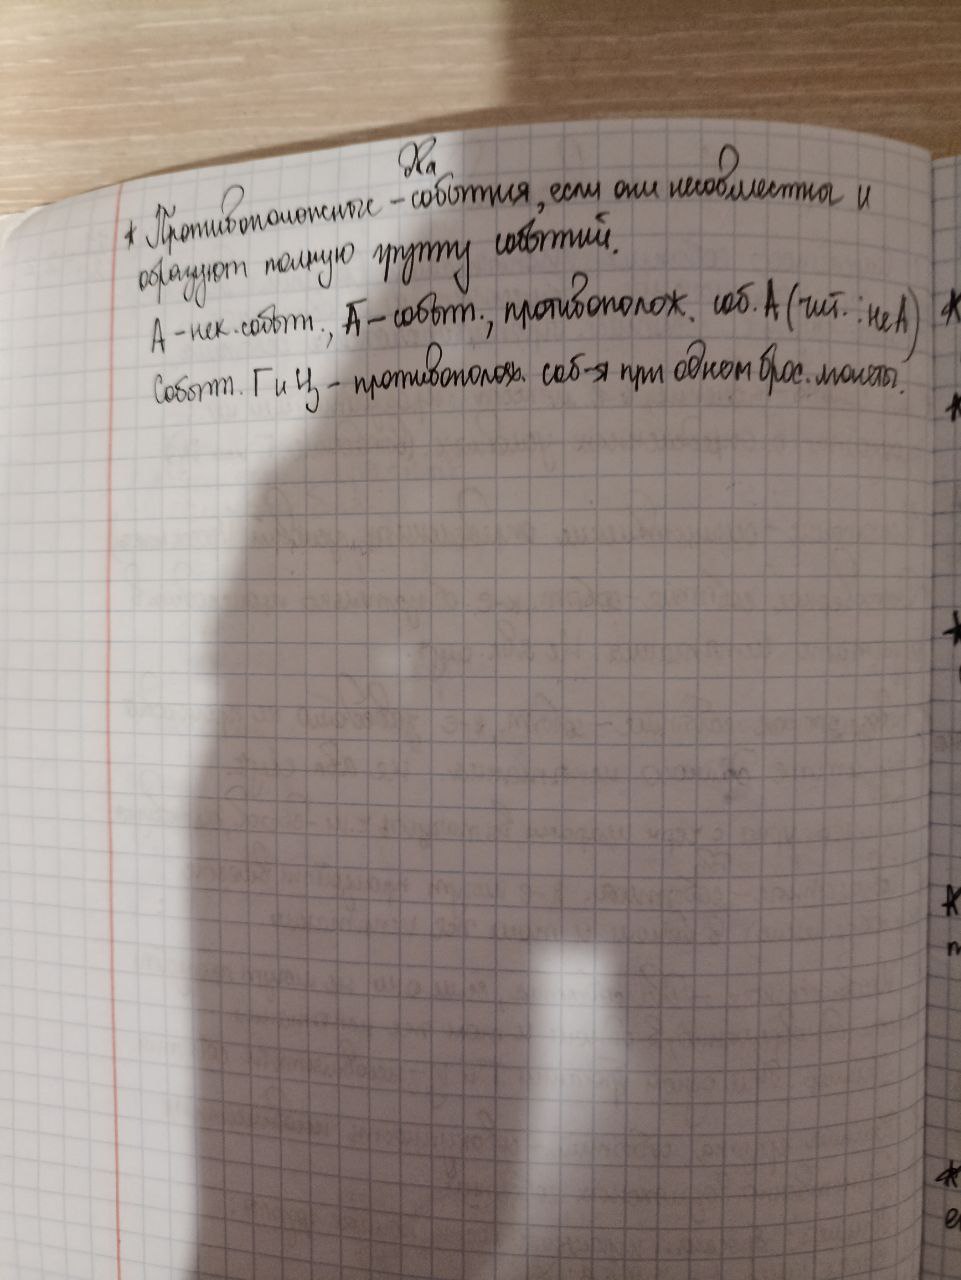 два
* Противоположные - события, если они несовместны и
образуют полную группу событий.
А - нек. событ., Ā - событ., противополож. соб. А (чит.: не А)
Событ. Г и Ц - противополож. соб-я при одном брос. монеты.